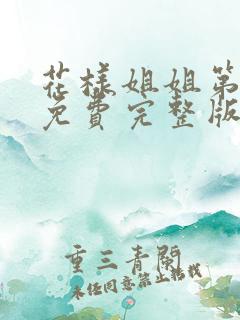 花样姐姐第
免費完整版
重三青閣
未经同意禁止转载